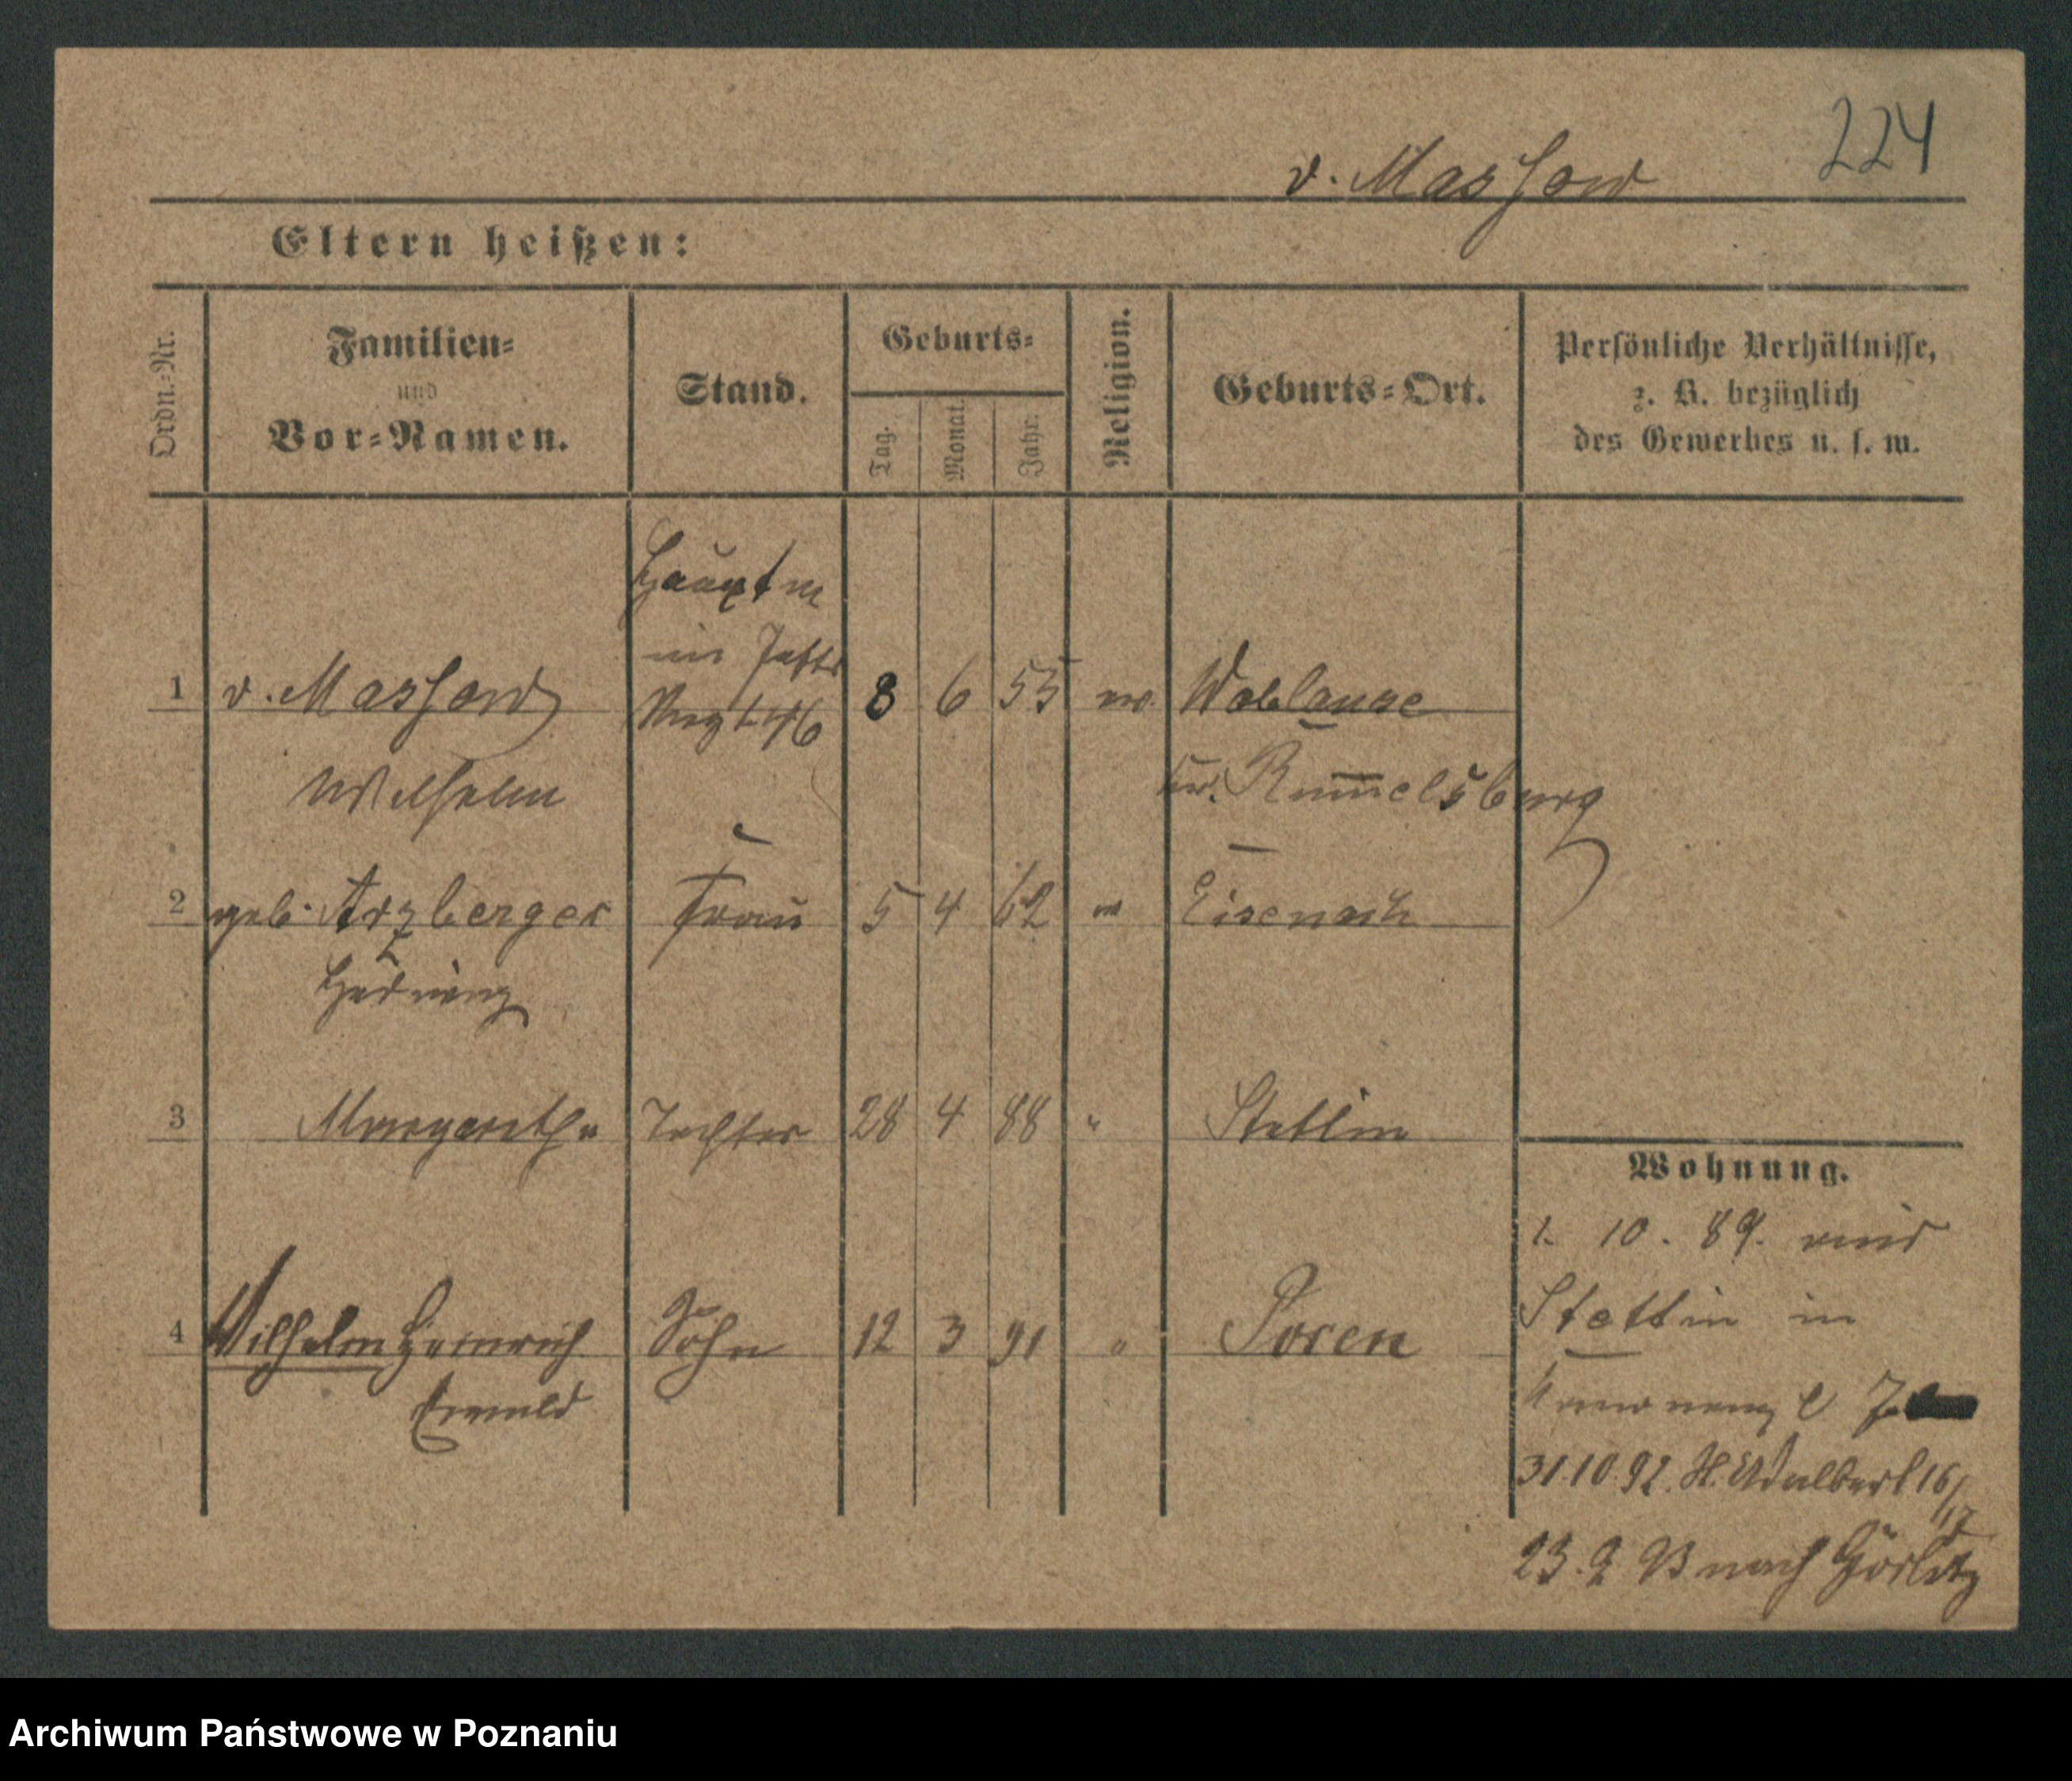 224
v. Massow
Eltern heißen:
Ordn.-Nr.
Familien-
und
Vor-Namen.
Stand.
Geburts-
Tag.
Monat.
Jahr.
Religion.
Geburts-Ort.
Persönliche Verhältnisse,
z. B. bezüglich
des Gewerbes u. s. w.
Hauptm
im Inftr
Regt 46
1 v. Massow 8 6 55 ev.
Wilhelm
Kr. Rummelsburg
2 geb. Arzberger Frau 5 4 62 Eisenach
Hedwig
3 Margarethe Tochter 28 4 88 " Stettin
4 Wilhelm Heinrich Sohn 12 3 91 " Posen
Ewald
Wohnung.
1. 10. 89. von
Stettin in
31.10.92. St. Adalbert 16/17
23. 9 93 nach Görlitz
Archiwum Państwowe w Poznaniu